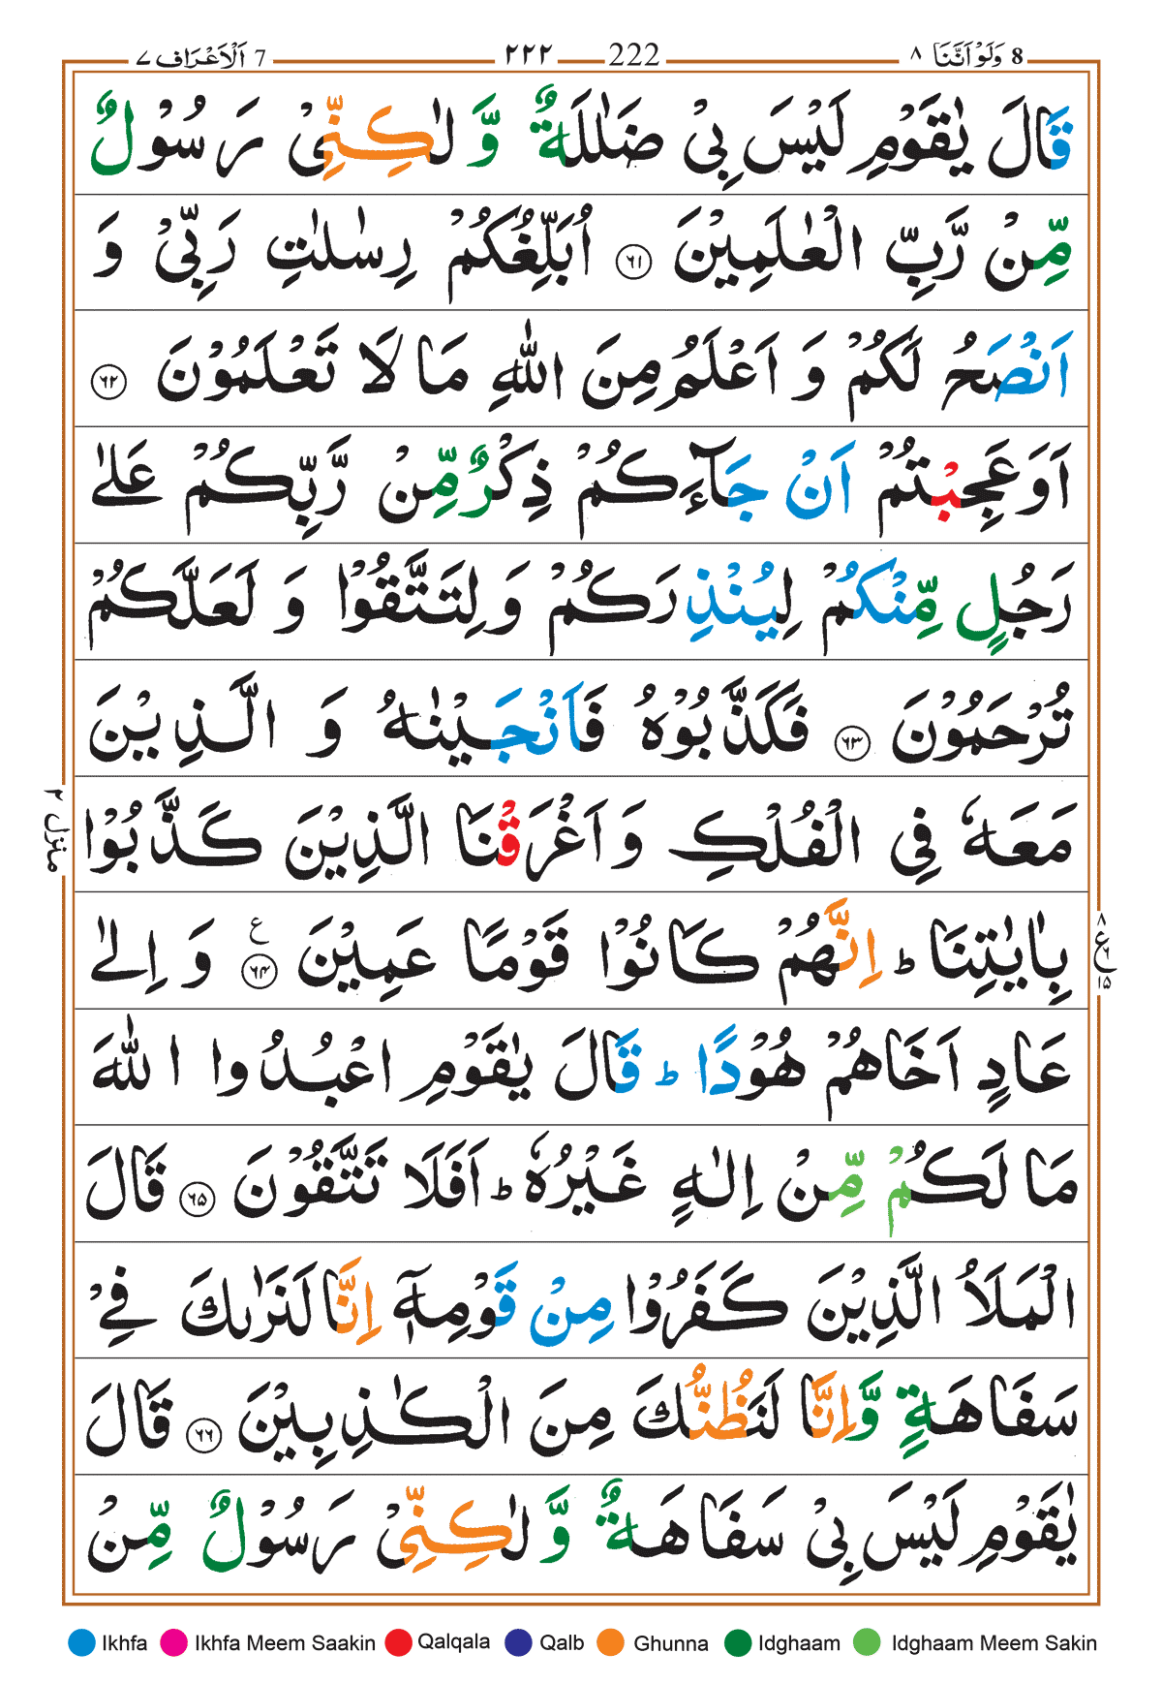 8 وَلَوْ اَنَّنَا ٨
222 ٢٢٢
7 اَلْاَعْرَاف ٧
قَالَ يٰقَوْمِ لَيْسَ بِيْ ضَلٰلَةٌ وَّ لٰكِنِّيْ رَسُوْلٌ
مِّنْ رَّبِّ الْعٰلَمِيْنَ ﴿٦١﴾ اُبَلِّغُكُمْ رِسٰلٰتِ رَبِّيْ وَ
اَنْصَحُ لَكُمْ وَ اَعْلَمُ مِنَ اللّٰهِ مَا لَا تَعْلَمُوْنَ ﴿٦٢﴾
اَوَعَجِبْتُمْ اَنْ جَآءَكُمْ ذِكْرٌ مِّنْ رَّبِّكُمْ عَلٰى
رَجُلٍ مِّنْكُمْ لِيُنْذِرَكُمْ وَ لِتَتَّقُوْا وَ لَعَلَّكُمْ
تُرْحَمُوْنَ ﴿٦٣﴾ فَكَذَّبُوْهُ فَاَنْجَيْنٰهُ وَ الَّذِيْنَ
مَعَهٗ فِي الْفُلْكِ وَ اَغْرَقْنَا الَّذِيْنَ كَذَّبُوْا
بِاٰيٰتِنَا ؕ اِنَّهُمْ كَانُوْا قَوْمًا عَمِيْنَ ﴿٦٤﴾ ع وَ اِلٰى
عَادٍ اَخَاهُمْ هُوْدًا ؕ قَالَ يٰقَوْمِ اعْبُدُوا اللّٰهَ
مَا لَكُمْ مِّنْ اِلٰهٍ غَيْرُهٗ ؕ اَفَلَا تَتَّقُوْنَ ﴿٦٥﴾ قَالَ
الْمَلَاُ الَّذِيْنَ كَفَرُوْا مِنْ قَوْمِهٖۤ اِنَّا لَنَرٰىكَ فِيْ
سَفَاهَةٍ وَّ اِنَّا لَنَظُنُّكَ مِنَ الْكٰذِبِيْنَ ﴿٦٦﴾ قَالَ
يٰقَوْمِ لَيْسَ بِيْ سَفَاهَةٌ وَّ لٰكِنِّيْ رَسُوْلٌ مِّنْ
منزل ٢
٨ ع ٦ ١٥
Ikhfa Ikhfa Meem Saakin Qalqala Qalb Ghunna Idghaam Idghaam Meem Sakin